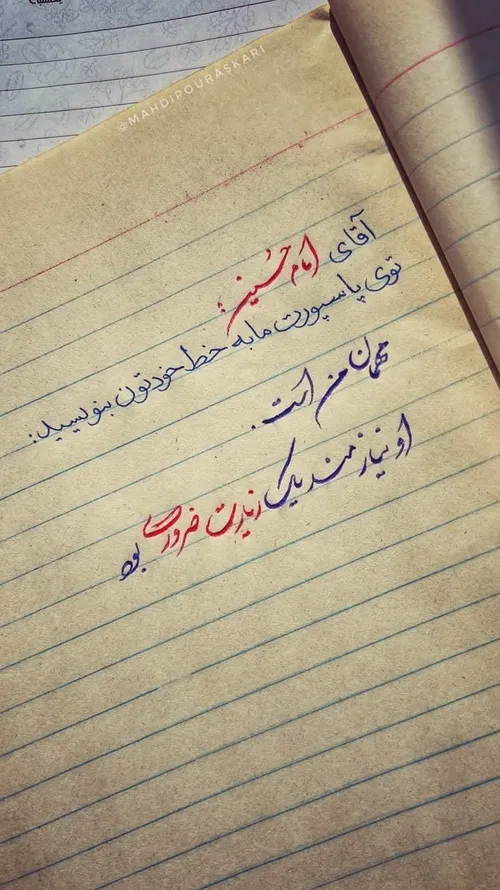 @MAHDIPOURASKARI
آقای امام حسین؛
توی پاسپورت ما به خط خودتون بنویسید:
مهمان من است.
او نیازمند یک زیارت ضروری بود